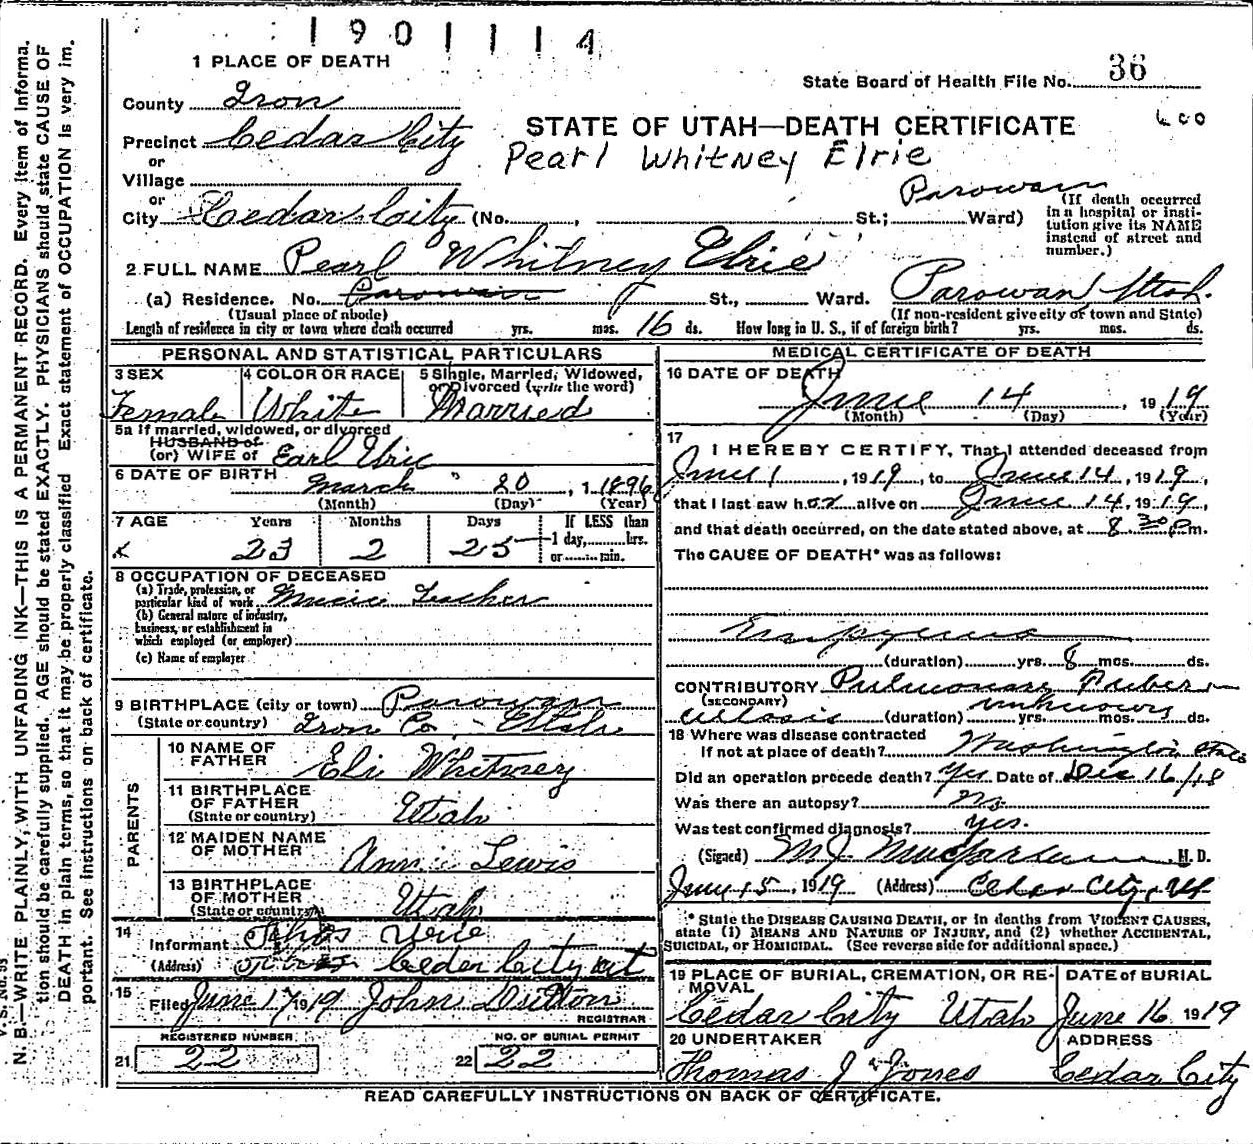 1901114
1 PLACE OF DEATH
State Board of Health File No. 36
County Iron
600
Precinct Cedar City
STATE OF UTAH—DEATH CERTIFICATE
Pearl Whitney Elrie
or
Village
or
Parowan
City Cedar City (No. , St.; Ward)
(If death occurred in a hospital or institution give its NAME instead of street and number.)
2 FULL NAME Pearl Whitney Elrie
(a) Residence. No. Parowan St., Ward. Parowan Utah.
(Usual place of abode) (If non-resident give city or town and State)
Length of residence in city or town where death occurred yrs. mos. 16 ds. How long in U. S., if of foreign birth? yrs. mos. ds.
PERSONAL AND STATISTICAL PARTICULARS
3 SEX Female
4 COLOR OR RACE White
5 Single, Married, Widowed, or Divorced (write the word) Married
5a If married, widowed, or divorced
HUSBAND of
(or) WIFE of Earl
6 DATE OF BIRTH March 20, 1 1896
(Month) (Day) (Year)
7 AGE Years Months Days If LESS than
23 2 25 1 day, hrs.
or min.
8 OCCUPATION OF DECEASED
(a) Trade, profession, or
particular kind of work Music Teacher
(b) General nature of industry,
business, or establishment in
which employed (or employer)
(c) Name of employer
9 BIRTHPLACE (city or town) Parowan
(State or country) Iron Co. Utah
PARENTS
10 NAME OF FATHER Eli Whitney
11 BIRTHPLACE OF FATHER (State or country) Utah
12 MAIDEN NAME OF MOTHER Annie Lewis
13 BIRTHPLACE OF MOTHER (State or country) Utah
14
Informant
(Address) Cedar City ut
15 Filed June 17 1919 John Dutton
REGISTRAR
REGISTERED NUMBER
21 22
NO. OF BURIAL PERMIT
22 22
MEDICAL CERTIFICATE OF DEATH
16 DATE OF DEATH
June 14, 1919
(Month) (Day) (Year)
17
I HEREBY CERTIFY, That I attended deceased from
June 1, 1919, to June 14, 1919,
that I last saw her alive on June 14, 1919,
and that death occurred, on the date stated above, at 8.30 Pm.
The CAUSE OF DEATH* was as follows:
Empyema
(duration) yrs. 8 mos. ds.
CONTRIBUTORY Pulmonary Tuber-
(SECONDARY)
culosis (duration) unknown yrs. mos. ds.
18 Where was disease contracted
If not at place of death? Washington State
Did an operation precede death? Yes Date of Dec 16/18
Was there an autopsy? No
Was test confirmed diagnosis? yes.
(Signed) M.J. Macfarlane, M. D.
June 15, 1919 (Address) Cedar City, Ut
* State the DISEASE CAUSING DEATH, or in deaths from VIOLENT CAUSES,
state (1) MEANS AND NATURE OF INJURY, and (2) whether ACCIDENTAL,
SUICIDAL, or HOMICIDAL. (See reverse side for additional space.)
19 PLACE OF BURIAL, CREMATION, OR REMOVAL
Cedar City Utah
DATE of BURIAL
June 16 1919
20 UNDERTAKER
Thomas J Jones
ADDRESS
Cedar City
READ CAREFULLY INSTRUCTIONS ON BACK OF CERTIFICATE.
N. B.—WRITE PLAINLY, WITH UNFADING INK—THIS IS A PERMANENT RECORD. Every item of informa-
tion should be carefully supplied. AGE should be stated EXACTLY. PHYSICIANS should state CAUSE OF
DEATH in plain terms, so that it may be properly classified. Exact statement of OCCUPATION is very im-
portant. See instructions on back of certificate.